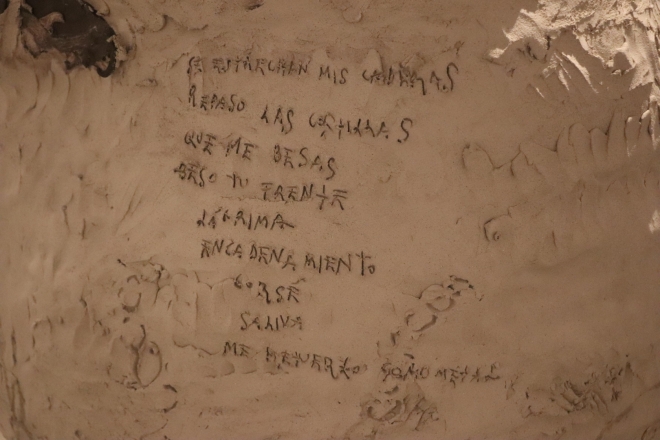 SE ESTRECHAN MIS CADERAS
REPASO LAS COSTILLAS
QUE ME BESAS
BESO TU FRENTE
LÁGRIMA
ENCADENAMIENTO
CORSÉ
SALIVA
ME RETUERZO COMO METAL